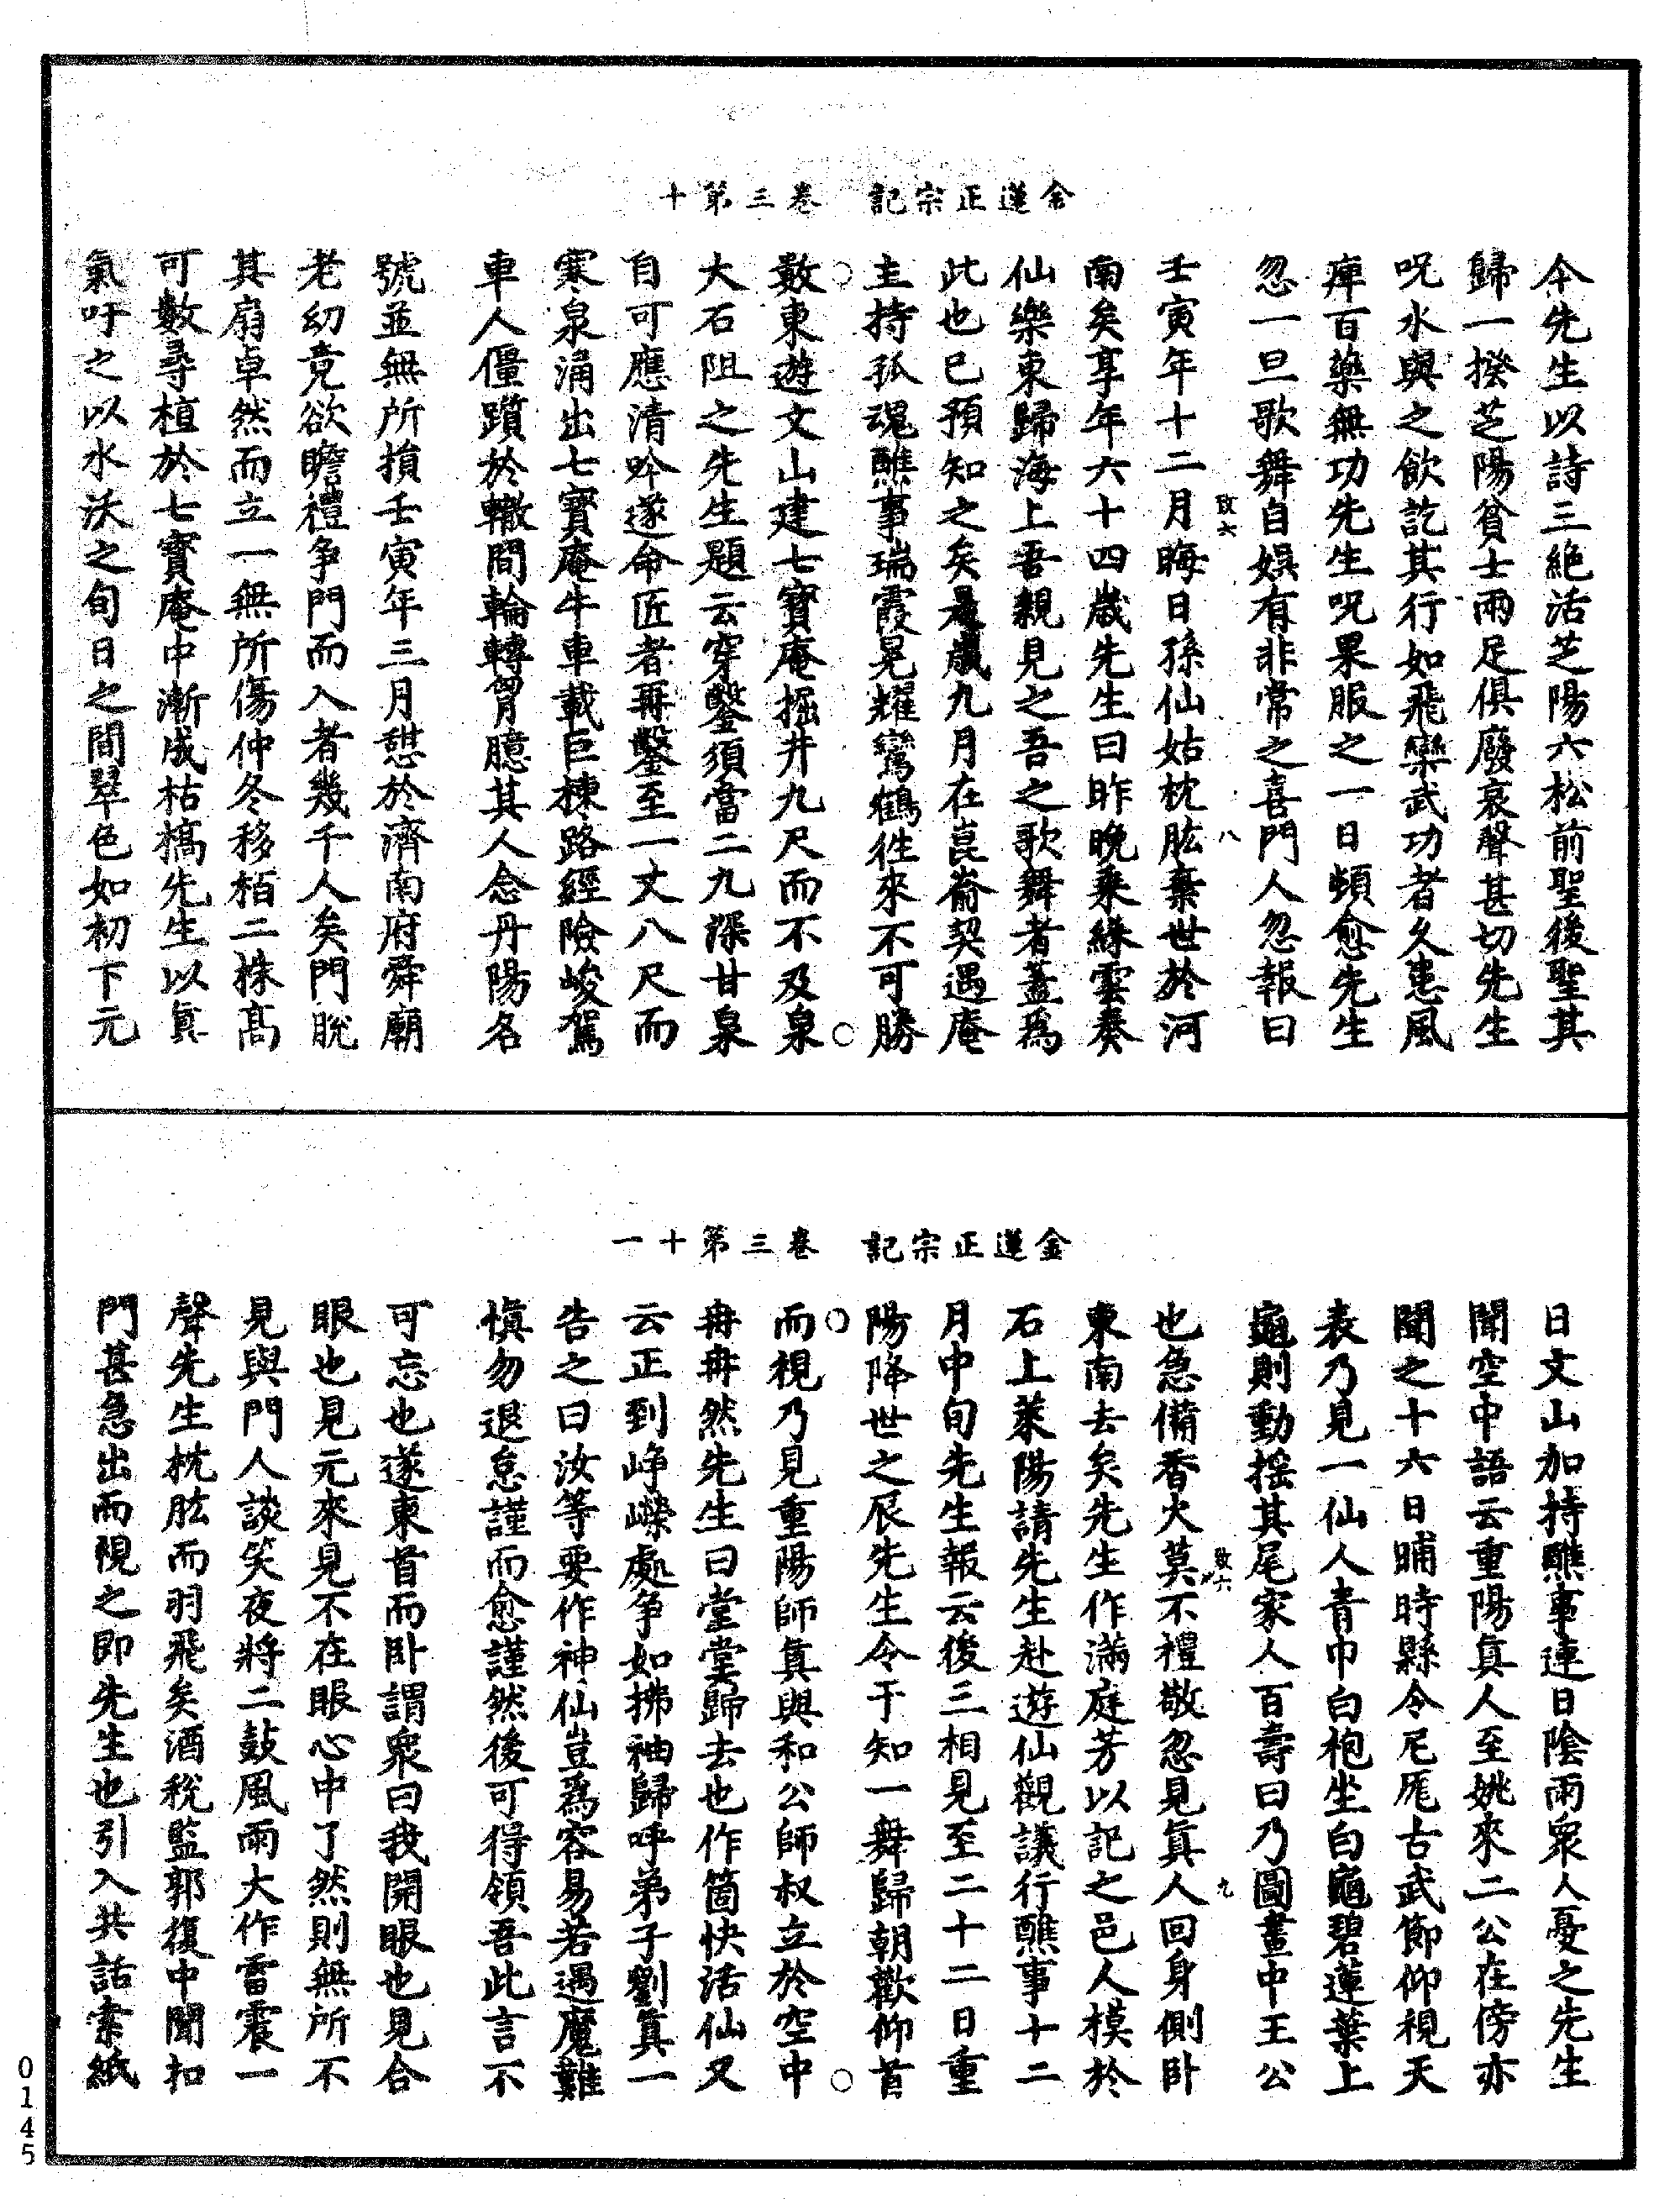 金蓮正宗記　卷三第十
今先生以詩三絶活芝陽六松前聖後聖其
歸一揆芝陽貧士兩足俱廢哀聲甚切先生
呪水與之飲訖其行如飛欒武功者久患風
痺百藥無功先生呪果服之一日頓愈先生
忽一旦歌舞自娛有非常之喜門人忽報曰
壬寅年十二月晦日孫仙姑枕肱棄世於河
南矣享年六十四歲先生曰昨晚乘綵雲奏
仙樂東歸海上吾親見之吾之歌舞者蓋爲
此也已預知之矣是歲九月在崑崳契遇庵
主持孤魂醮事瑞霞晃耀鸞鶴徃來不可勝
數東遊文山建七寶庵掘井九尺而不及泉
大石阻之先生題云穿鑿須當二九深甘泉
自可應清吟遂命匠者再鑿至一丈八尺而
寒泉涌出七寶庵牛車載巨棟路經險峻駕
車人僵躓於轍間輪轉胷臆其人念丹陽名
號並無所損壬寅年三月憇於濟南府舜廟
老幼竟欲瞻禮爭門而入者幾千人矣門脫
其扇卓然而立一無所傷仲冬移栢二株髙
可數尋植於七寶庵中漸成枯槁先生以眞
氣吁之以水沃之旬日之間翠色如初下元
敢六　八
金蓮正宗記　卷三第十一
日文山加持醮事連日陰雨衆人憂之先生
聞空中語云重陽眞人至姚來二公在傍亦
聞之十六日晡時縣令尼厖古武節仰視天
表乃見一仙人青巾白袍坐白龜碧蓮葉上
龜則動揺其尾家人百壽曰乃圖畫中王公
也急備香火莫不禮敬忽見眞人回身側卧
東南去矣先生作滿庭芳以記之邑人模於
石上萊陽請先生赴遊仙觀議行醮事十二
月中旬先生報云後三相見至二十二日重
陽降世之辰先生令于知一舞歸朝歡仰首
而視乃見重陽師眞與和公師叔立於空中
冉冉然先生曰堂堂歸去也作箇快活仙又
云正到崢嶸處爭如拂袖歸呼弟子劉眞一
告之曰汝等要作神仙豈爲容易若遇魔難
愼勿退怠謹而愈謹然後可得領吾此言不
可忘也遂東首而卧謂衆曰我開眼也見合
眼也見元來見不在眼心中了然則無所不
見與門人談笑夜將二鼓風雨大作雷震一
聲先生枕肱而羽飛矣酒稅監郭復中聞扣
門甚急出而視之即先生也引入共話索紙
敢六　九
0145